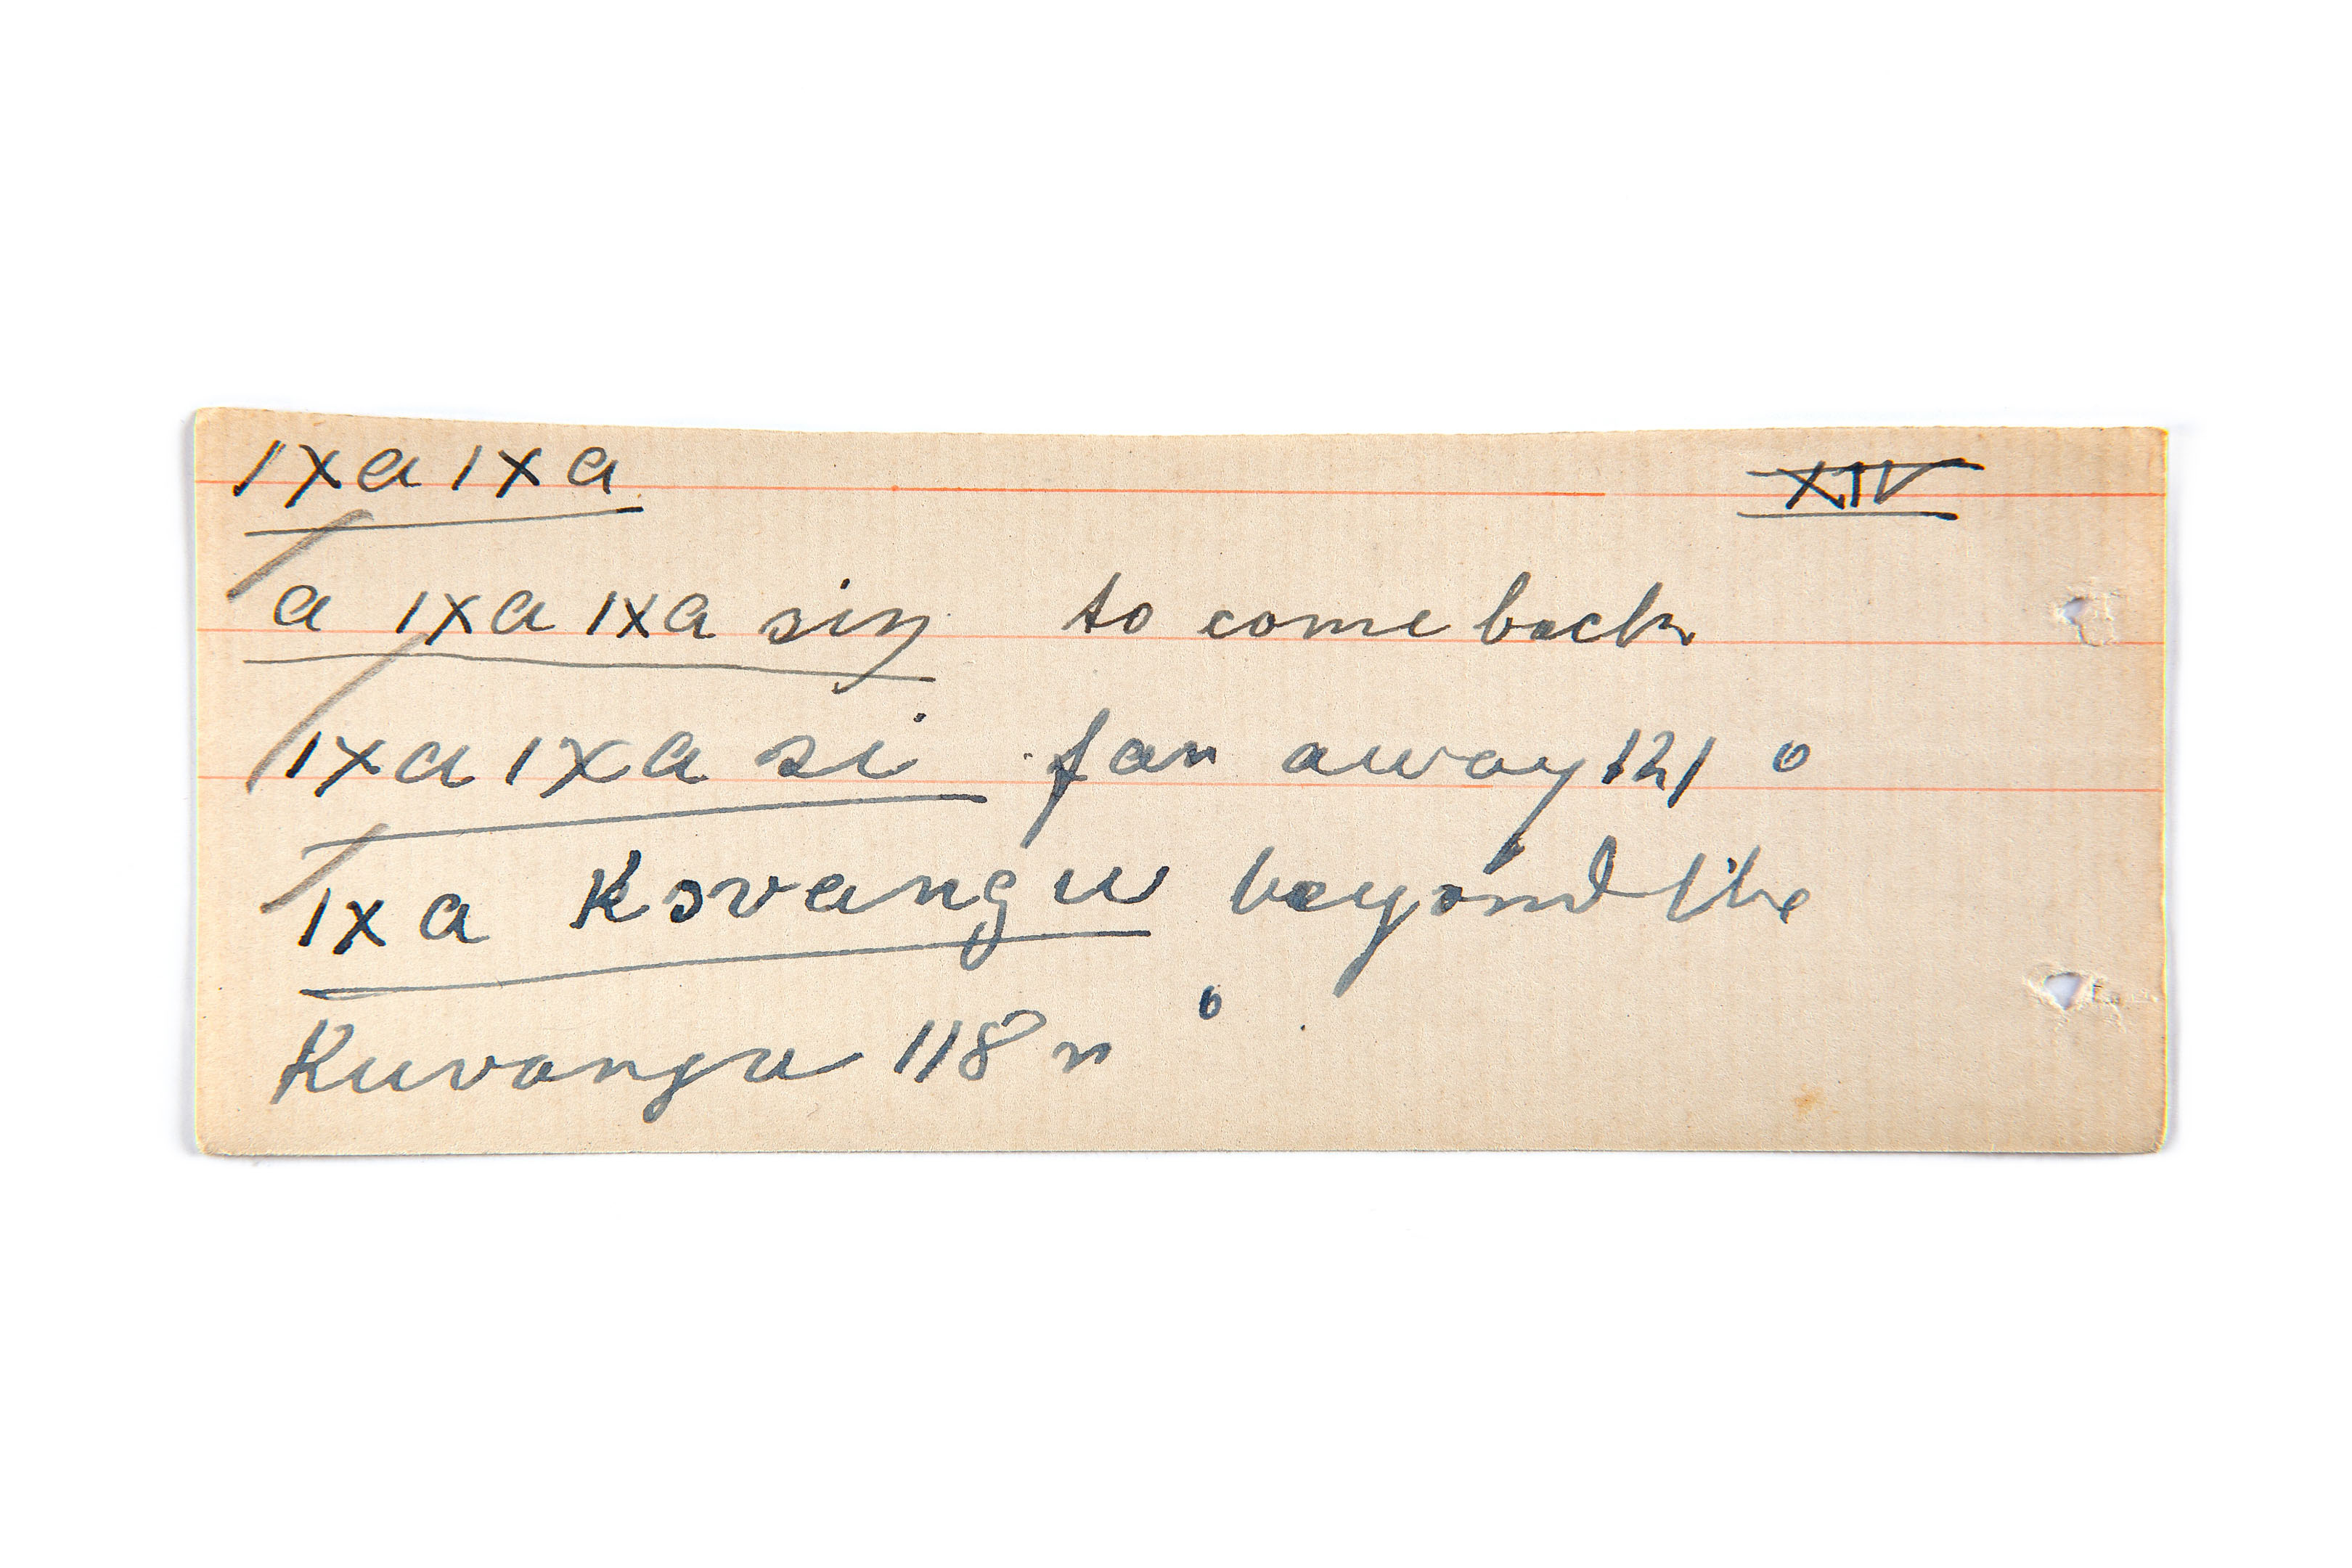 ǀxaǀxa XIV
a ǀxaǀxa siŋ to come back
ǀxaǀxa si far away 121 o
ǀxa Kɔvangu beyond the
Kuvangu 118 n o